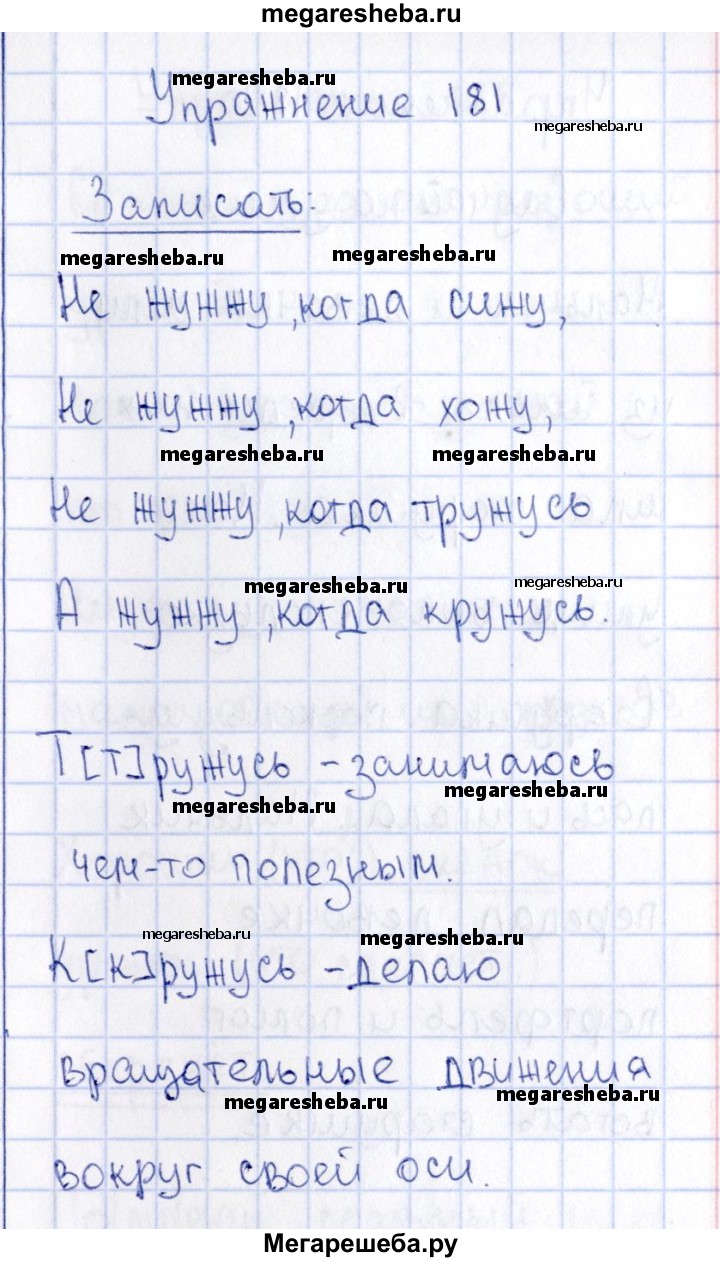 megaresheba.ru
megaresheba.ru
Упражнение 181
megaresheba.ru
Записать:
megaresheba.ru megaresheba.ru
Не жужжу, когда сижу,
Не жужжу, когда хожу,
megaresheba.ru megaresheba.ru
Не жужжу, когда тружусь
megaresheba.ru megaresheba.ru
А жужжу, когда кружусь.
Т[т]ружусь – занимаюсь
megaresheba.ru megaresheba.ru
чем-то полезным.
megaresheba.ru megaresheba.ru
К[к]ружусь – делаю
вращательные движения
megaresheba.ru megaresheba.ru
вокруг своей оси.
Мегарешеба.ру